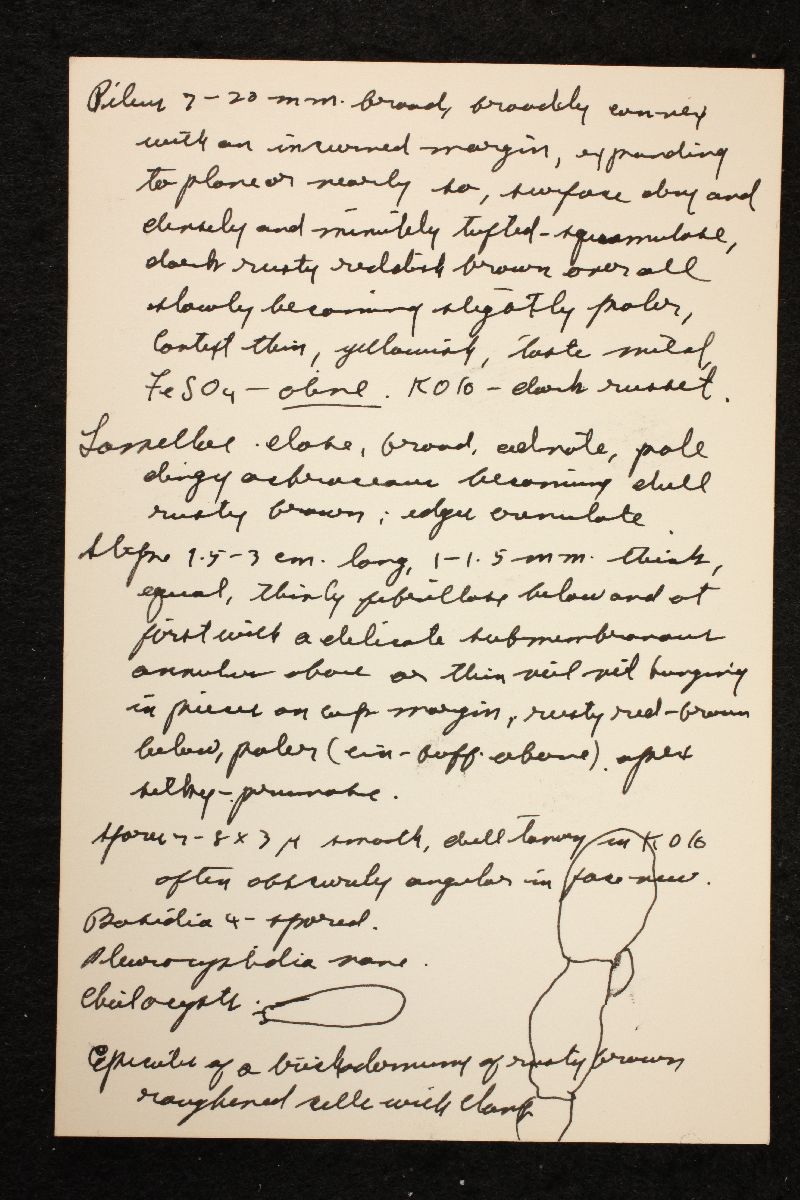 Pileus 7-20 mm. broad, broadly convex
with an incurved margin, expanding
to plane or nearly so, surface dry and
densely and minutely tufted-squamulose,
dark rusty reddish brown over all
slowly becoming slightly paler,
Context thin, yellowish, taste mild,
FeSO4 - olive. KOH - dark russet.
Lamellae close, broad, adnate, pale
dingy ochraceous becoming dull
rusty brown; edges crenulate
Stipe 1.5-3 cm. long, 1-1.5 mm. thick,
equal, thinly fibrillose below and at
first with a delicate submembranous
annulus above or thin veil hanging
in pieces on cap margin, rusty red-brown
below, paler (cin-buff above). apex
silky-pruinose.
Spores 7-8 x 3 µ smooth, dull tawny in KOH
often obscurely angular in face view.
Basidia 4-spored.
Pleurocystidia none.
Cheilocysts.
Epicutis of a trichodermium of rusty brown
roughened cells with clamp